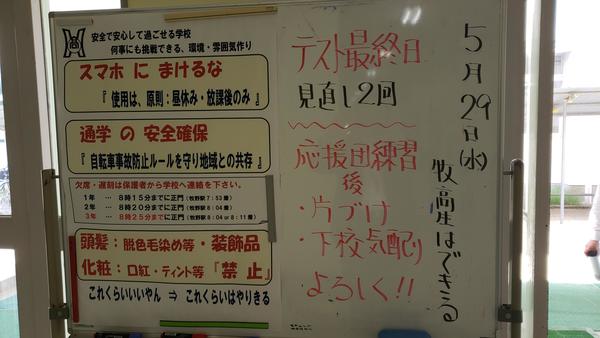 安全で安心して過ごせる学校
何事にも挑戦できる、環境・雰囲気作り
スマホ に まけるな
『 使用は、原則:昼休み・放課後のみ 』
通学 の 安全確保
『 自転車事故防止ルールを守り地域との共存 』
欠席・遅刻は保護者から学校へ連絡を下さい。
1年 … 8時15分までに正門(牧野駅7:53着)
2年 … 8時20分までに正門(牧野駅8:04着)
3年 … 8時25分までに正門(牧野駅8:04 or 8:11着)
頭髪:脱色毛染め等・装飾品
化粧:口紅・ティント等『禁 止』
これくらいいいやん ⇒ これくらいはやりきる
5月29日(水)
牧高生はできる
テスト最終日
見直し2回
応援団練習
後
・片づけ
・下校気配り
よろしく!!